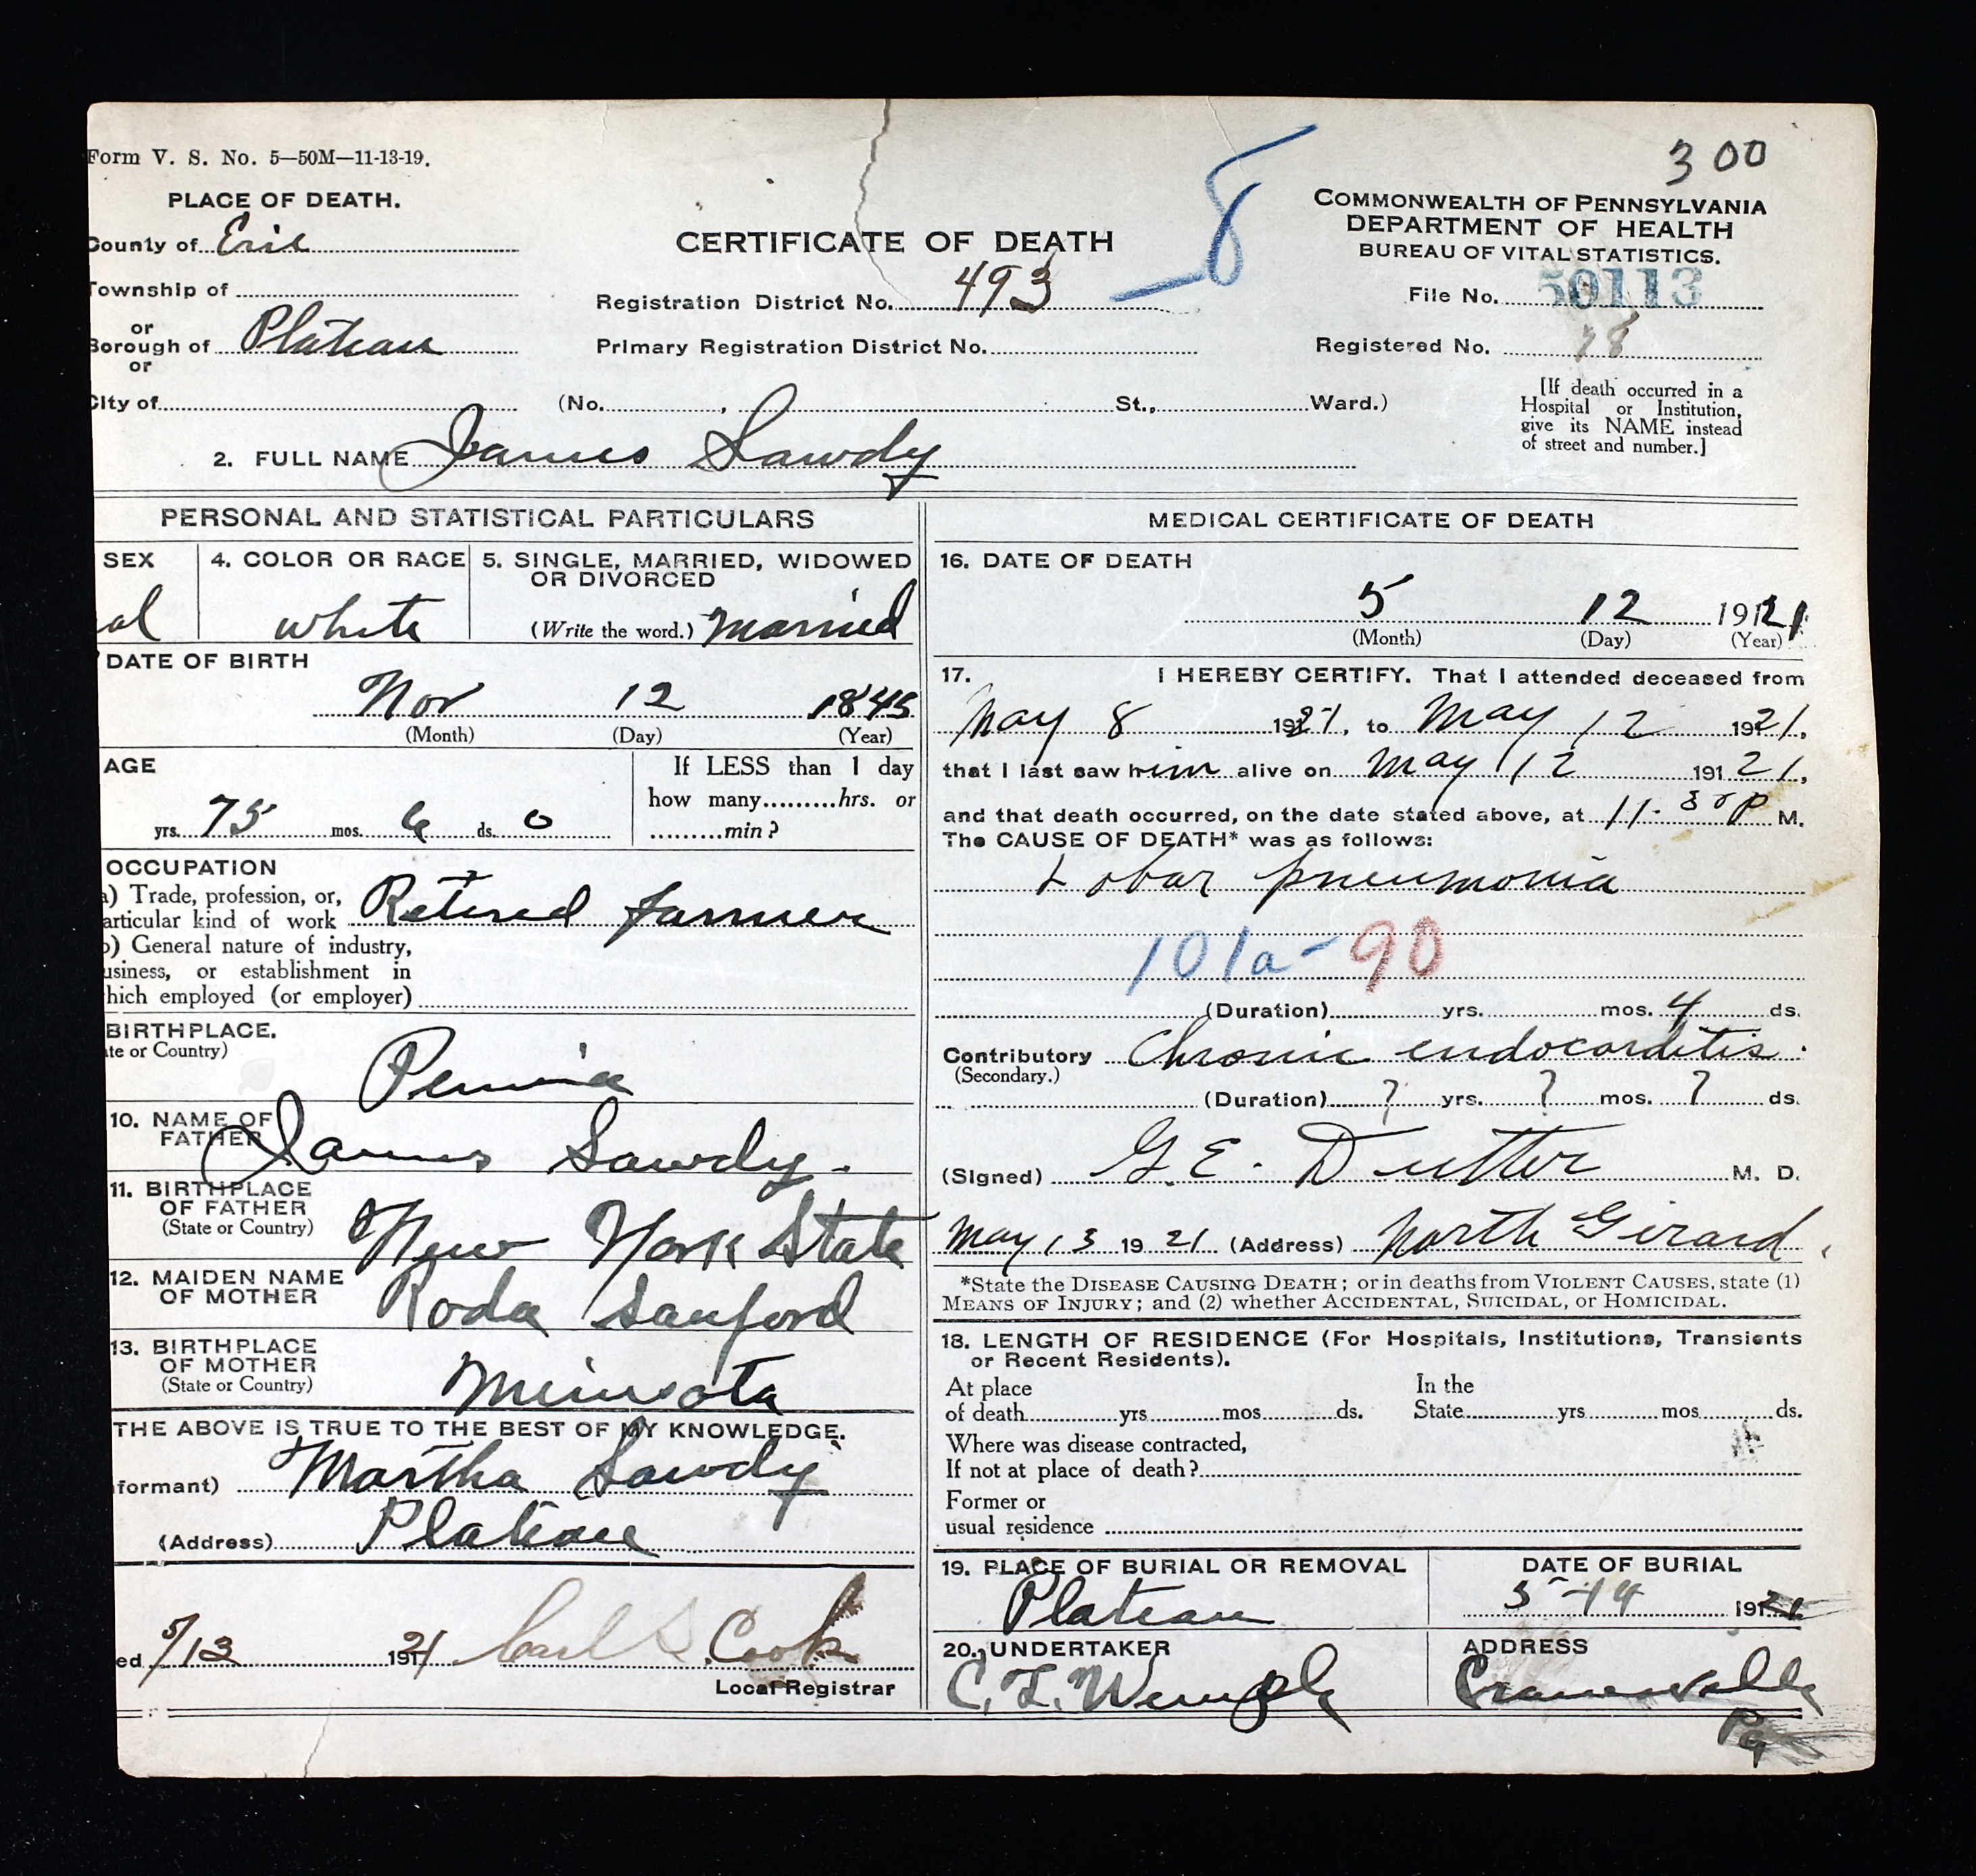 Form V. S. No. 5—50M—11-13-19.
300
PLACE OF DEATH.
County of Erie
Township of
or
Borough of Plateau
or
City of
CERTIFICATE OF DEATH
8
Registration District No. 493
Primary Registration District No.
(No. , St., Ward.)
COMMONWEALTH OF PENNSYLVANIA
DEPARTMENT OF HEALTH
BUREAU OF VITAL STATISTICS.
File No. 50113
Registered No.
[If death occurred in a
Hospital or Institution,
give its NAME instead
of street and number.]
2. FULL NAME James Sawdy
PERSONAL AND STATISTICAL PARTICULARS
SEX
al
4. COLOR OR RACE
white
5. SINGLE, MARRIED, WIDOWED
OR DIVORCED
(Write the word.) Married
DATE OF BIRTH
Nov 12 1845
(Month) (Day) (Year)
AGE
yrs. 75 mos. 6 ds. 0
If LESS than 1 day
how many hrs. or
min?
OCCUPATION
a) Trade, profession, or,
articular kind of work Retired farmer
b) General nature of industry,
usiness, or establishment in
hich employed (or employer)
BIRTHPLACE.
te or Country)
Penna
10. NAME OF
FATHER James Sawdy.
11. BIRTHPLACE
OF FATHER
(State or Country) New York State
12. MAIDEN NAME
OF MOTHER Roda Sanford
13. BIRTHPLACE
OF MOTHER
(State or Country) Minsota
THE ABOVE IS TRUE TO THE BEST OF MY KNOWLEDGE.
formant) Martha Sawdy
(Address) Plateau
ed 5/13 1921 Carl S. Cook
Local Registrar
MEDICAL CERTIFICATE OF DEATH
16. DATE OF DEATH
5 12 1921
(Month) (Day) (Year)
17. I HEREBY CERTIFY. That I attended deceased from
May 8 1921, to May 12 1921,
that I last saw him alive on May 12 191 21,
and that death occurred, on the date stated above, at 11.30 P M.
The CAUSE OF DEATH* was as follows:
Lobar pneumonia
101a- 90
(Duration) yrs. mos. 4 ds.
Contributory Chronic endocarditis.
(Secondary.)
(Duration) ? yrs. ? mos. ? ds.
(Signed) G. E. Dutter M. D.
May 13 19 21 (Address) North Girard.
*State the DISEASE CAUSING DEATH; or in deaths from VIOLENT CAUSES, state (1)
MEANS OF INJURY; and (2) whether ACCIDENTAL, SUICIDAL, or HOMICIDAL.
18. LENGTH OF RESIDENCE (For Hospitals, Institutions, Transients
or Recent Residents).
At place
of death yrs mos ds.
In the
State yrs mos ds.
Where was disease contracted,
If not at place of death?
Former or
usual residence
19. PLACE OF BURIAL OR REMOVAL
Plateau
DATE OF BURIAL
5-14 1921
20. UNDERTAKER
C. L. Wemple
ADDRESS
Cranesville
Pa